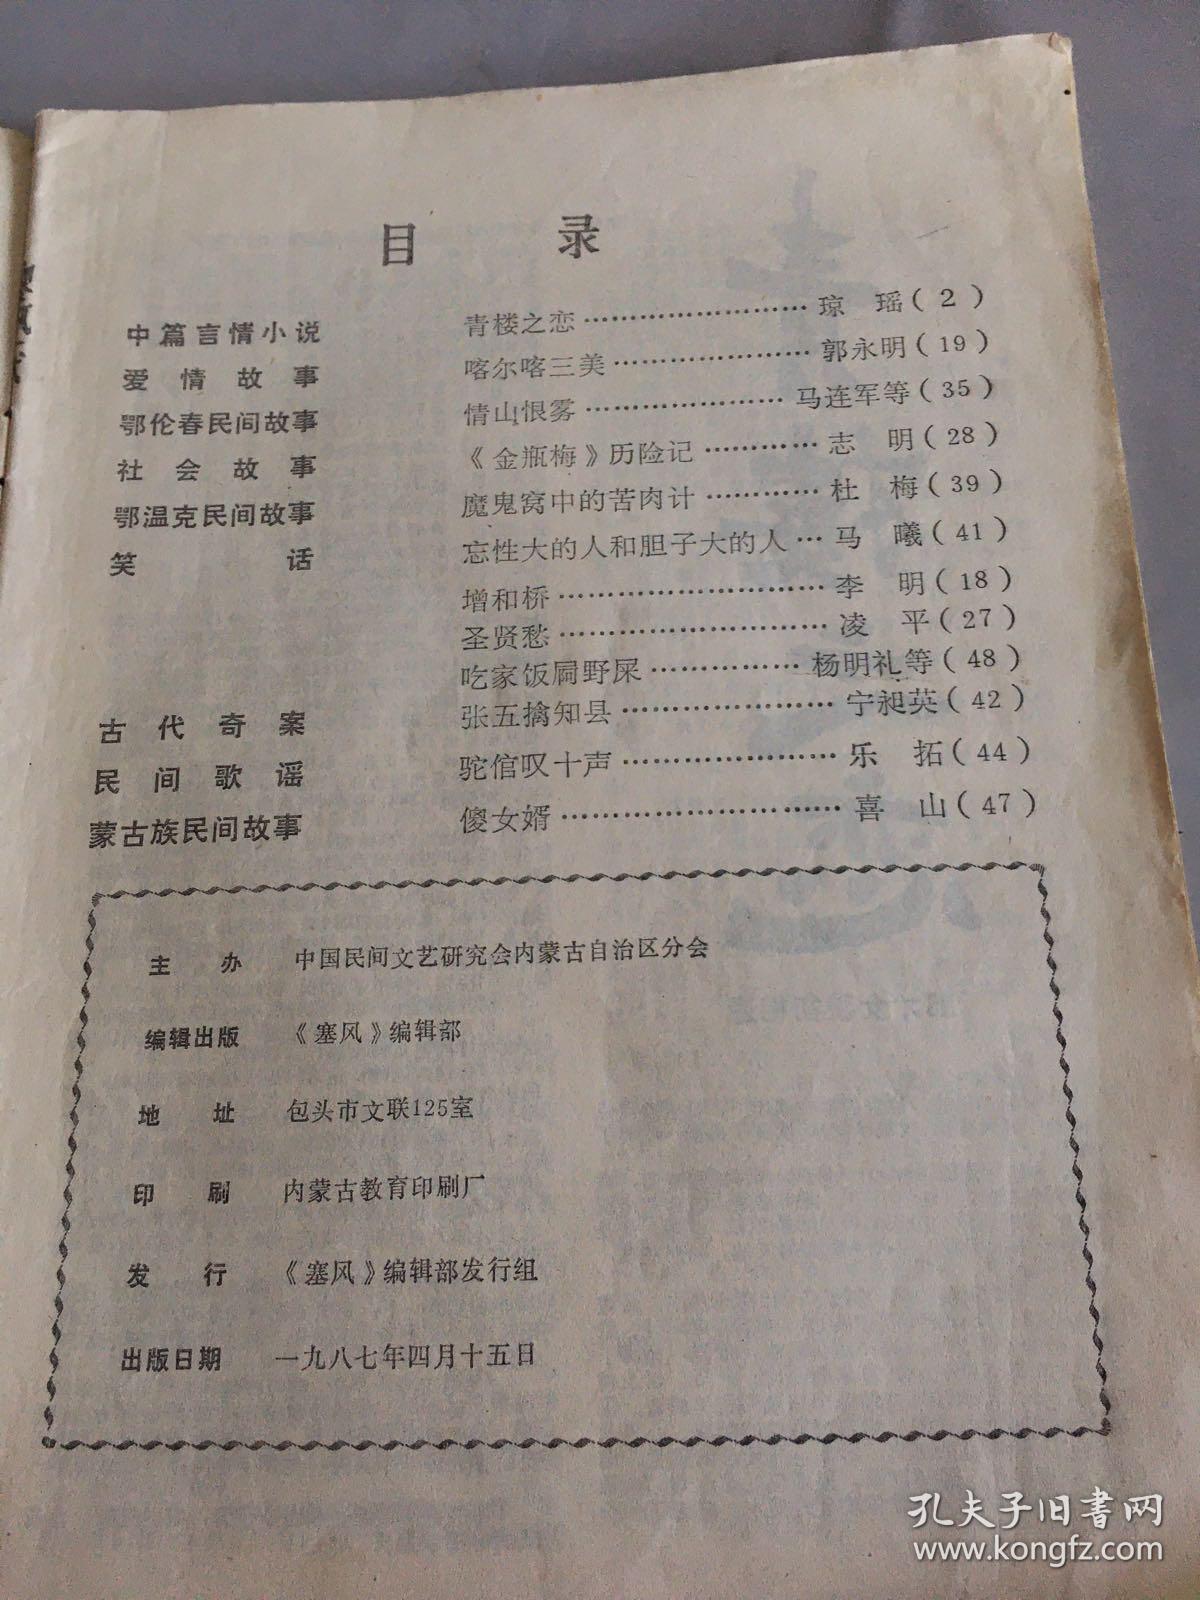 目 录
中篇言情小说 青楼之恋……………………琼 瑶(2)
爱情故事 喀尔喀三美…………………郭永明(19)
鄂伦春民间故事 情山恨雾…………………马连军等(35)
社会故事 《金瓶梅》历险记…………志 明(28)
鄂温克民间故事 魔鬼窝中的苦肉计…………杜 梅(39)
笑话 忘性大的人和胆子大的人…马 曦(41)
增和桥………………………李 明(18)
圣贤愁………………………凌 平(27)
吃家饭屙野屎……………杨明礼等(48)
古代奇案 张五擒知县…………………宁昶英(42)
民间歌谣 驼倌叹十声…………………乐 拓(44)
蒙古族民间故事 傻女婿………………………喜 山(47)
主办 中国民间文艺研究会内蒙古自治区分会
编辑出版 《塞风》编辑部
地址 包头市文联125室
印刷 内蒙古教育印刷厂
发行 《塞风》编辑部发行组
出版日期 一九八七年四月十五日
孔夫子旧书网
www.kongfz.com